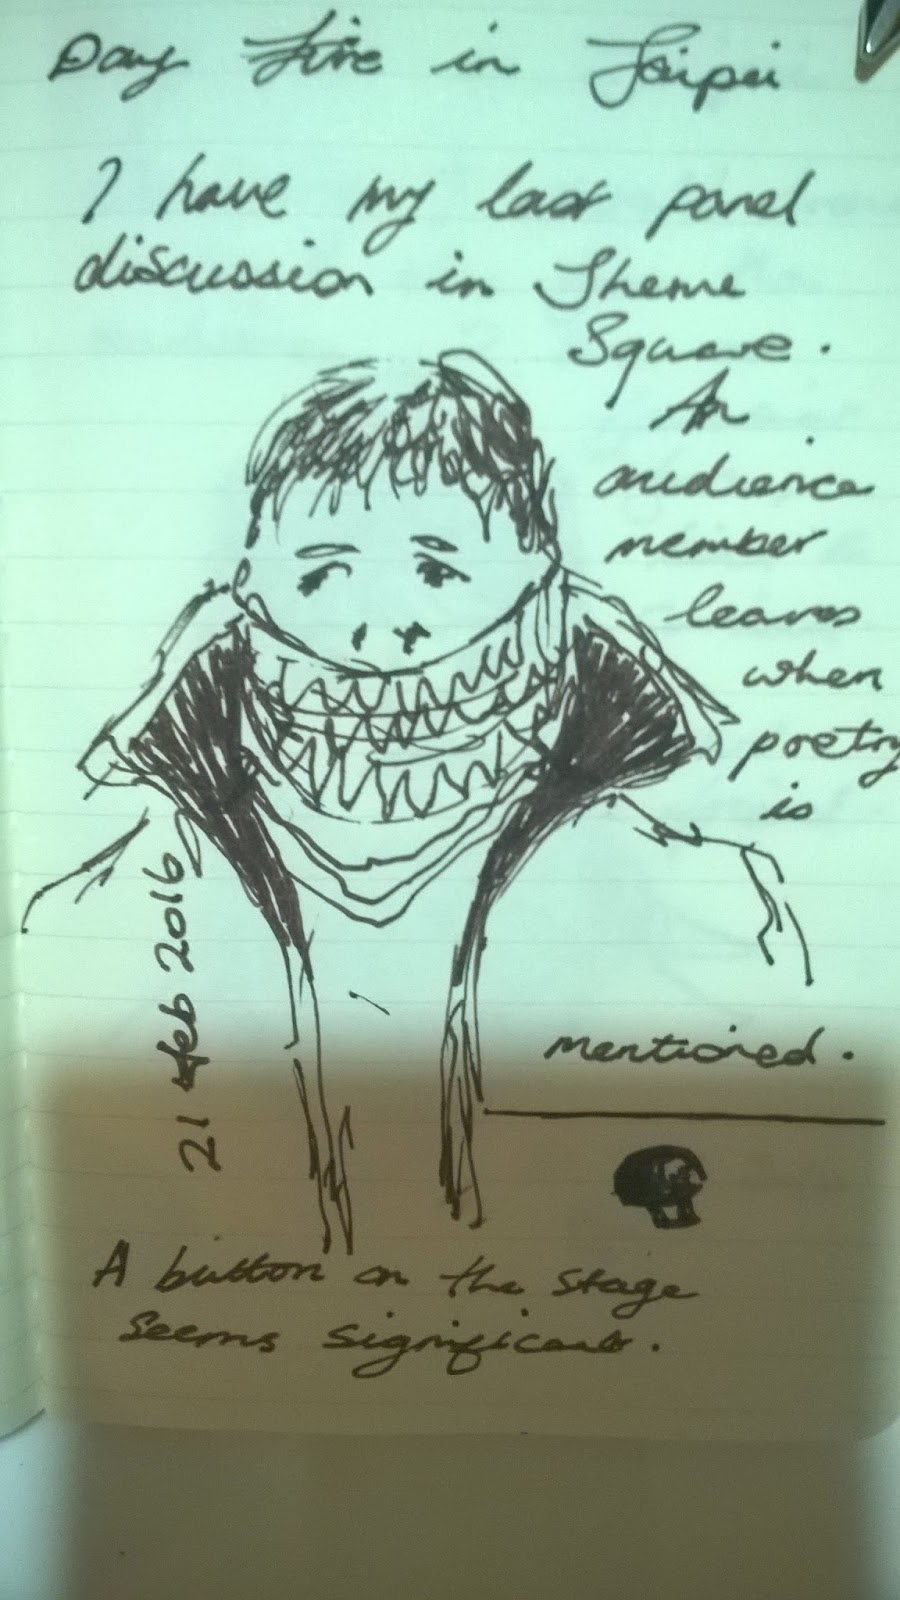 Day Five in Taipei
I have my last panel
discussion in Theme
Square.
An
audience
member
leaves
when
poetry
is
mentioned.
21 Feb 2016
A button on the stage
seems significant.